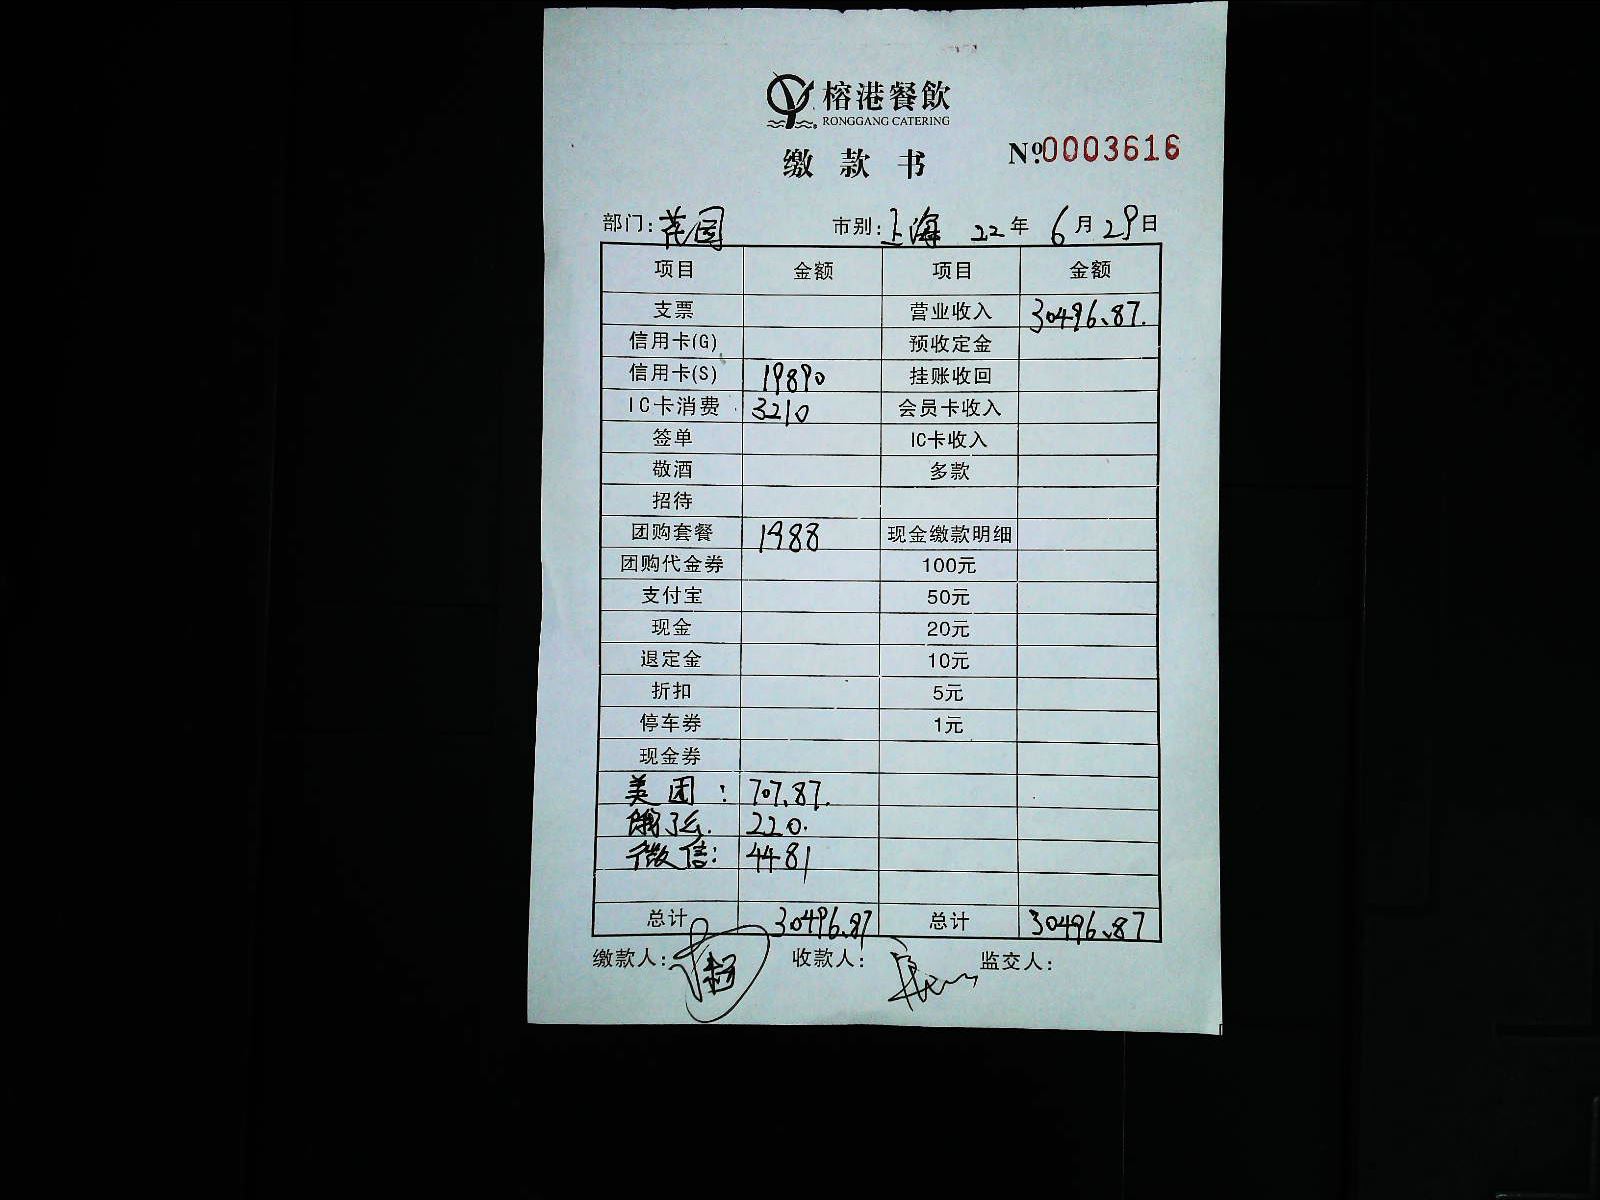 榕港餐飲
RONGGANG CATERING
缴款书 Nº.0003616
部门:花园 市别:上海 22年6月29日
项目 金额 项目 金额
支票 营业收入 30496.87.
信用卡(G) 预收定金
信用卡(S) 19890 挂账收回
IC卡消费 3210 会员卡收入
签单 IC卡收入
敬酒 多款
招待
团购套餐 1988 现金缴款明细
团购代金券 100元
支付宝 50元
现金 20元
退定金 10元
折扣 5元
停车券 1元
现金券
美团: 707.87.
饿了么. 220.
微信: 4481
总计 30496.87 总计 30496.87
缴款人: 收款人: 监交人: